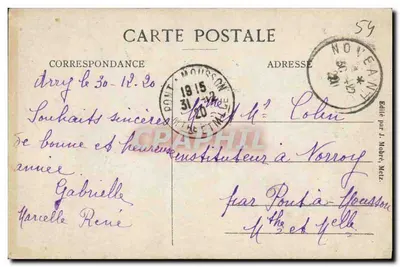 54
CARTE POSTALE
CORRESPONDANCE
ADRESSE
Arry le 30-12-20
Souhaits sincères
de bonne et heureuse
année.
Gabrielle
Marcelle René
PONT-A-MOUSSON
19 15
31
20
NOVEANT
Mr Colin
instituteur à Norroy
par Pont à Mousson
Mthe et Melle
Edité par J. Mohré, Metz.